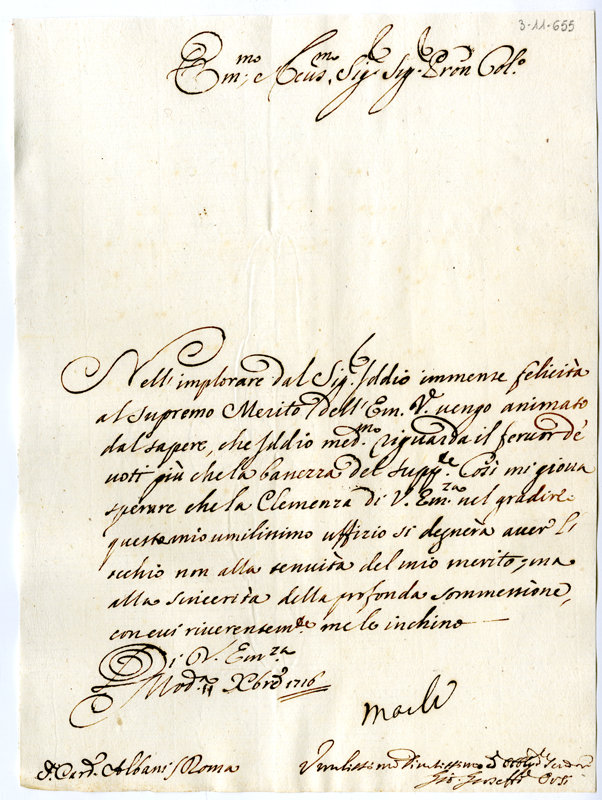 3-11-655
Em.mo, e Re.mo Sig.r Sig.r Pron Col.o
Nell'implorare dal Sig.r Iddio immense felicità
al supremo Merito dell'Em. V. vengo animato
dal sapere, che Iddio med.mo riguarda il fervor de'
voti più che la bassezza del supp.te Così mi giova
sperare che la Clemenza di V. Em.za nel gradire
questo mio umilissimo uffizio si degnerà aver l'
occhio non alla tenuità del mio merito, ma
alla sincerità della profonda sommessione,
con cui riverentem.te me le inchino
Di V. Em.za
Mod.a 11 Xbre 1716
S.r Card. Albani Roma
Umilissimo Divotissimo ed Obblig.mo Servidor
Gio. Gioseffo Orsi